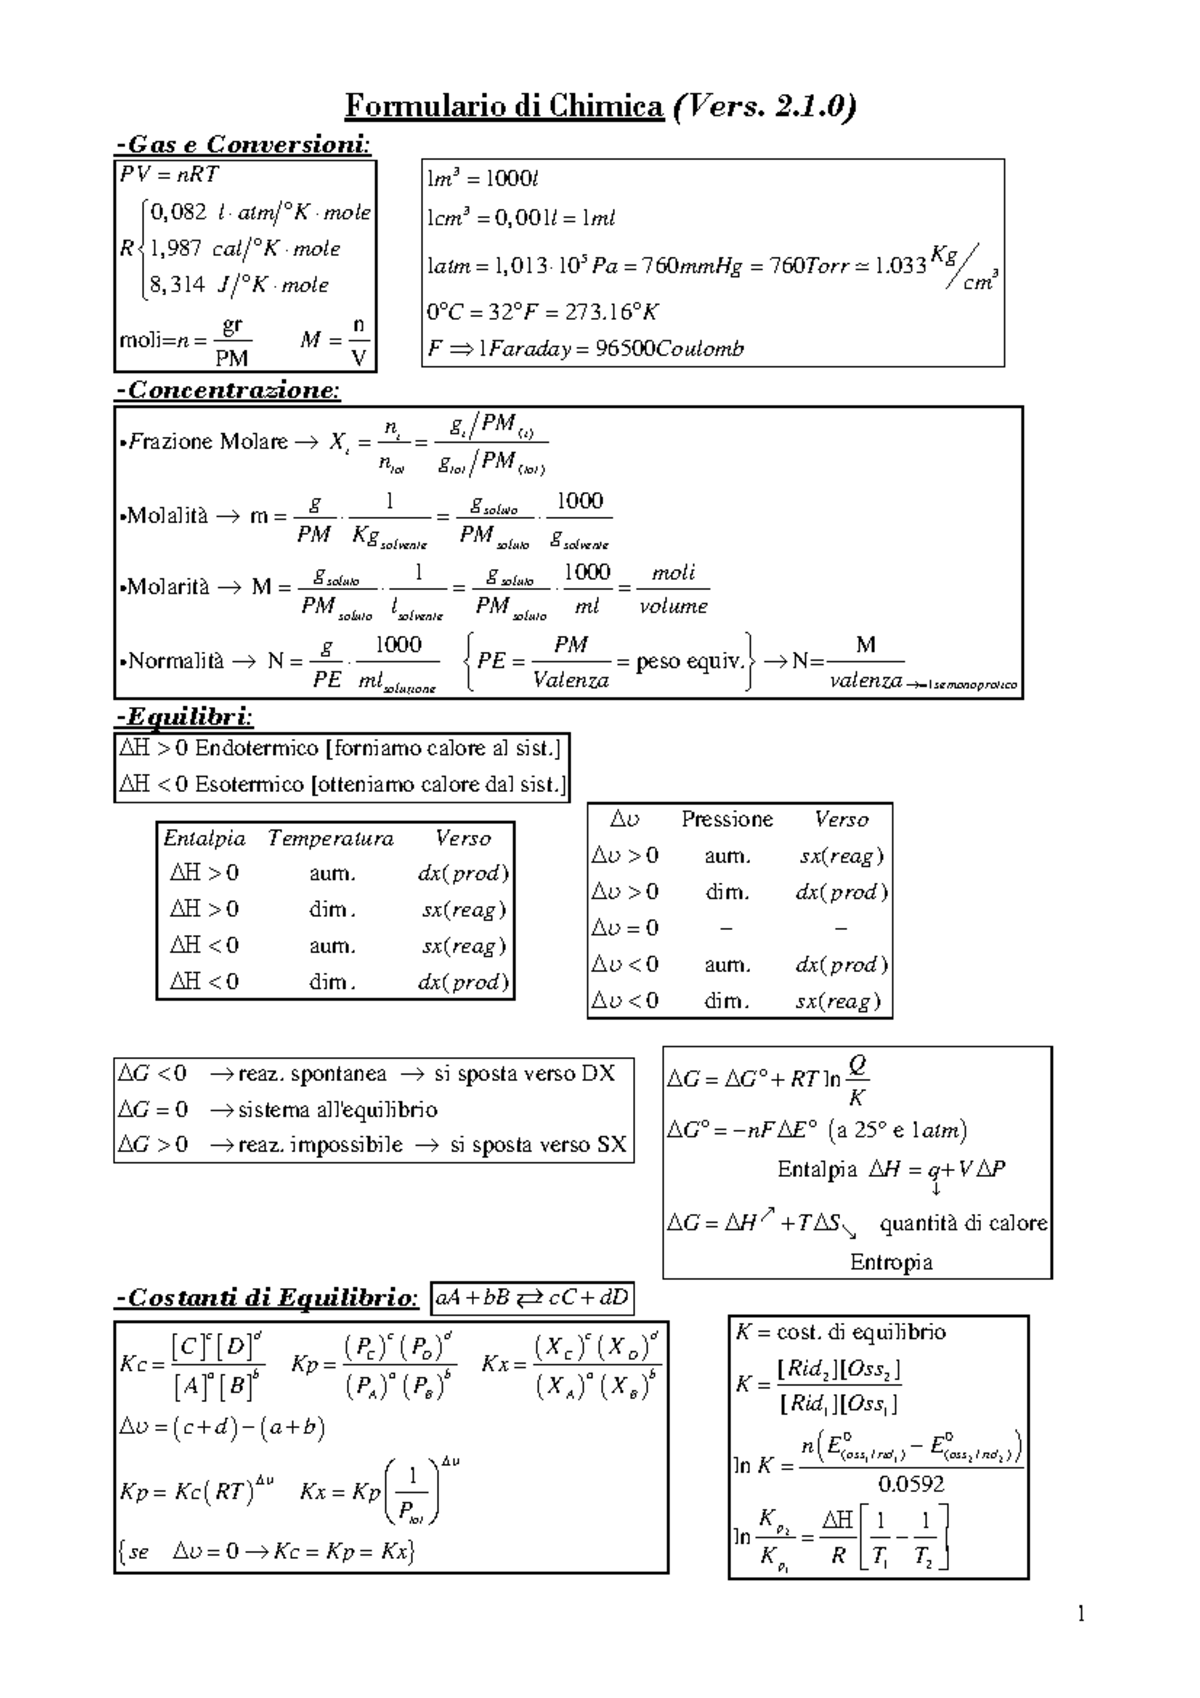 Formulario di Chimica (Vers. 2.1.0)
-Gas e Conversioni:
PV = nRT
R { 0,082 l · atm/°K · mole
1,987 cal/°K · mole
8,314 J/°K · mole
moli=n = gr/PM M = n/V
1m³ = 1000l
1cm³ = 0,001l = 1ml
1atm = 1,013·10⁵ Pa = 760mmHg = 760Torr ≃ 1.033 Kg/cm³
0°C = 32°F = 273.16°K
F ⇒ 1Faraday = 96500Coulomb
-Concentrazione:
•Frazione Molare → X_i = n_i/n_tot = (g_i/PM_(i))/(g_tot/PM_(tot))
•Molalità → m = g/PM · 1/Kg_solvente = g_soluto/PM_soluto · 1000/g_solvente
•Molarità → M = g_soluto/PM_soluto · 1/l_solvente = g_soluto/PM_soluto · 1000/ml = moli/volume
•Normalità → N = g/PE · 1000/ml_soluzione {PE = PM/Valenza = peso equiv.} → N= M/valenza →=1 se monoprotico
-Equilibri:
ΔH > 0 Endotermico [forniamo calore al sist.]
ΔH < 0 Esotermico [otteniamo calore dal sist.]
Entalpia Temperatura Verso
ΔH > 0 aum. dx(prod)
ΔH > 0 dim. sx(reag)
ΔH < 0 aum. sx(reag)
ΔH < 0 dim. dx(prod)
Δυ Pressione Verso
Δυ > 0 aum. sx(reag)
Δυ > 0 dim. dx(prod)
Δυ = 0 – –
Δυ < 0 aum. dx(prod)
Δυ < 0 dim. sx(reag)
ΔG < 0 → reaz. spontanea → si sposta verso DX
ΔG = 0 → sistema all'equilibrio
ΔG > 0 → reaz. impossibile → si sposta verso SX
ΔG = ΔG° + RT ln Q/K
ΔG° = −nFΔE° (a 25° e 1atm)
Entalpia ΔH = q + VΔP
↓
ΔG = ΔH↗ + TΔS↘ quantità di calore
Entropia
-Costanti di Equilibrio: aA + bB ⇄ cC + dD
Kc = [C]^c[D]^d/[A]^a[B]^b Kp = (P_C)^c(P_D)^d/(P_A)^a(P_B)^b Kx = (X_C)^c(X_D)^d/(X_A)^a(X_B)^b
Δυ = (c + d) − (a + b)
Kp = Kc(RT)^Δυ Kx = Kp(1/P_tot)^Δυ
{se Δυ = 0 → Kc = Kp = Kx}
K = cost. di equilibrio
K = [Rid₂][Oss₂]/[Rid₁][Oss₁]
ln K = n(E⁰_(oss₁/rid₁) − E⁰_(oss₂/rid₂))/0.0592
ln K_p₂/K_p₁ = ΔH/R [1/T₁ − 1/T₂]
1